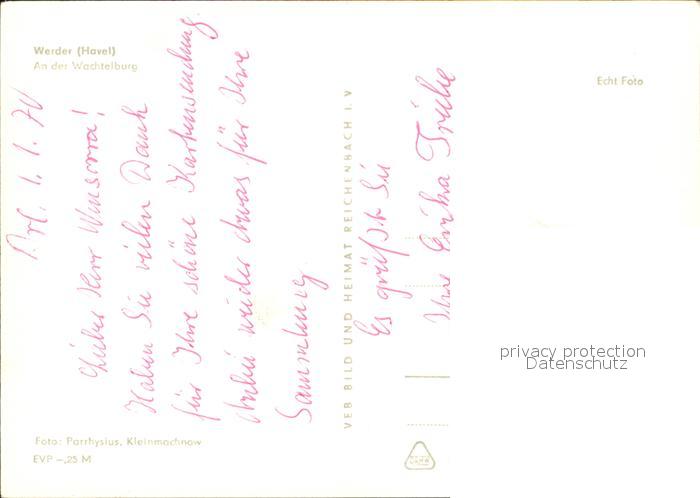 Werder (Havel)
An der Wachtelburg
Echt Foto
1. 1. 70
Lieber Herr
Haben Sie vielen Dank
für Ihre schöne Kartensendung.
wieder etwas für Ihre
Sammlung.
Es grüßt Sie
Ihre Erika
VEB BILD UND HEIMAT REICHENBACH I. V
Foto: Parrhysius, Kleinmachnow
EVP –,25 M
privacy protection
Datenschutz